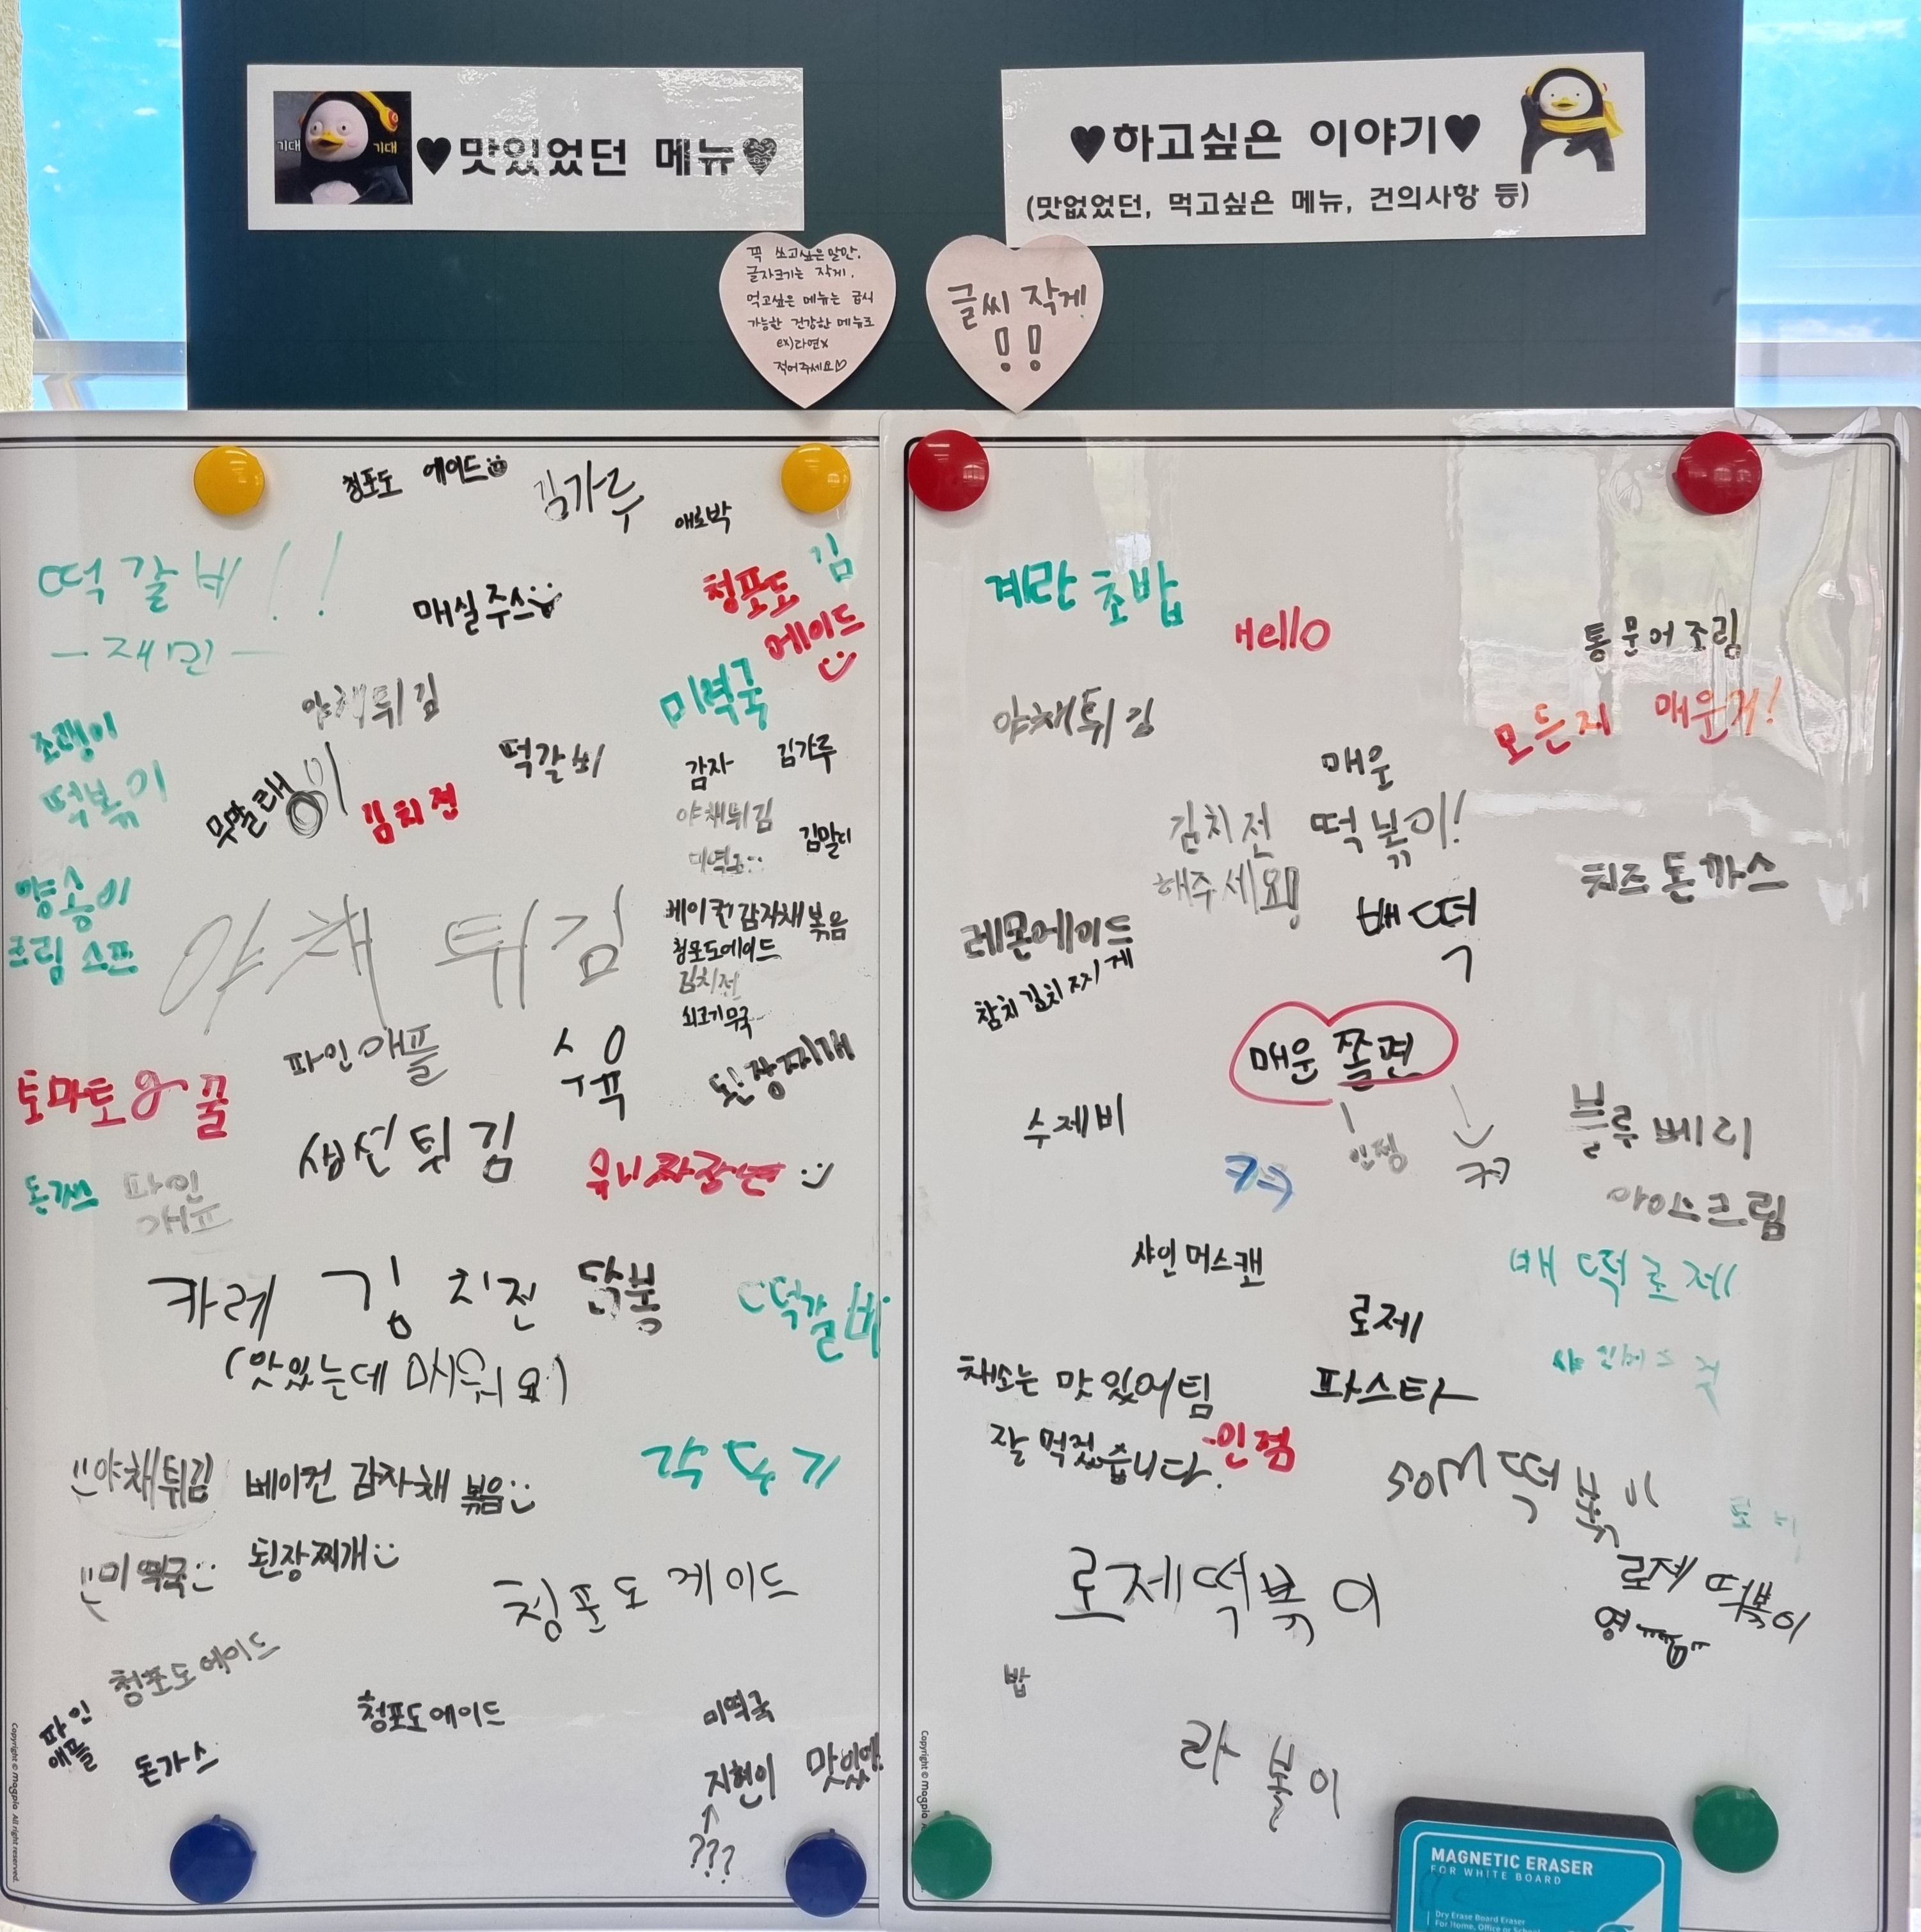 기대 기대
♥맛있었던 메뉴♥
♥하고싶은 이야기♥
(맛없었던, 먹고싶은 메뉴, 건의사항 등)
꼭 쓰고싶은말만.
글자크기는 작게.
먹고싶은 메뉴는 급식
가능한 건강한 메뉴로
ex)라면x
적어주세요♡
글씨 작게
!!
청포도 에이드
김가루
애호박
떡갈비!!
-재민-
매실주스
김
청포도
에이드
야채튀김
미역국
조랭이
떡볶이
무말랭이
김치전
떡갈비
감자
김가루
야채튀김
김말이
미역국
양송이
크림 스프
야채 튀김
베이컨 감자채 볶음
청포도에이드
김치전
쇠고기무국
파인애플
수육
된장찌개
토마토&꿀
생선튀김
유니짜장면
돈까스
파인
애플
카레
김치전
닭봉
떡갈비
(맛있는데 매워요)
야채튀김
베이컨 감자채 볶음
깍두기
미역국
된장찌개
청포도 에이드
청포도에이드
파인
애플
돈가스
청포도에이드
미역국
지현이
맛있쪙
???
계란 초밥
Hello
통문어조림
야채튀김
모든지 매운거!
매운
떡볶이!
김치전
해주세요!
치즈돈까스
배떡
레몬에이드
참치김치찌개
매운 쫄면
수제비
인정
블루베리
아이스크림
샤인머스캣
배떡로제
로제
파스타
채소는 맛있어팀
잘 먹겠습니다.
-인정
som떡볶이
로제
로제떡볶이
로제 떡볶이
밥
라볶이
Copyright © magpie All right reserved.
MAGNETIC ERASER
FOR WHITE BOARD
Dry Erase Board Eraser